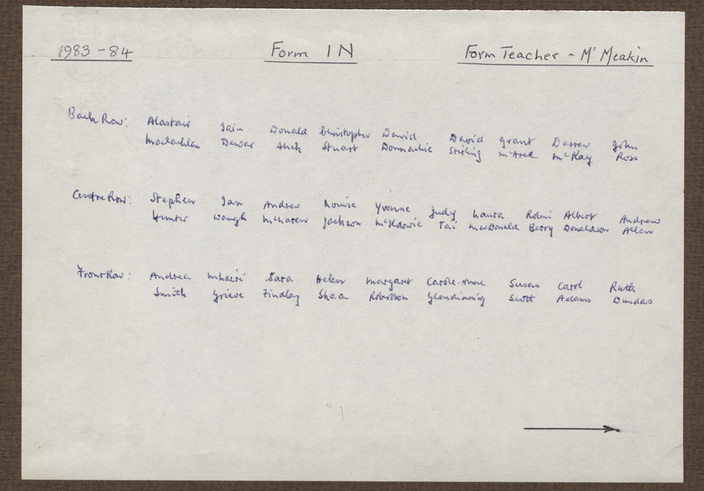 1983-84 Form 1N Form Teacher - Mr Meakin
Back Row: Alastair Iain Donald Christopher David David Grant Darren John
Maclachlan Dewar Stuart Stirling McKay Ross
Centre Row: Stephen Ian Andrew Louise Yvonne Judy Laura Robin Albert Andrew
Hunter Waugh McLaren Jackson Tai MacDonald Berry Donaldson Allan
Front Row: Andrea Mhairi Sara Helen Margaret Carole-Anne Susan Carol Ruth
Smith Grieve Findlay Shea Robertson Glendinning Scott Adams Dundas